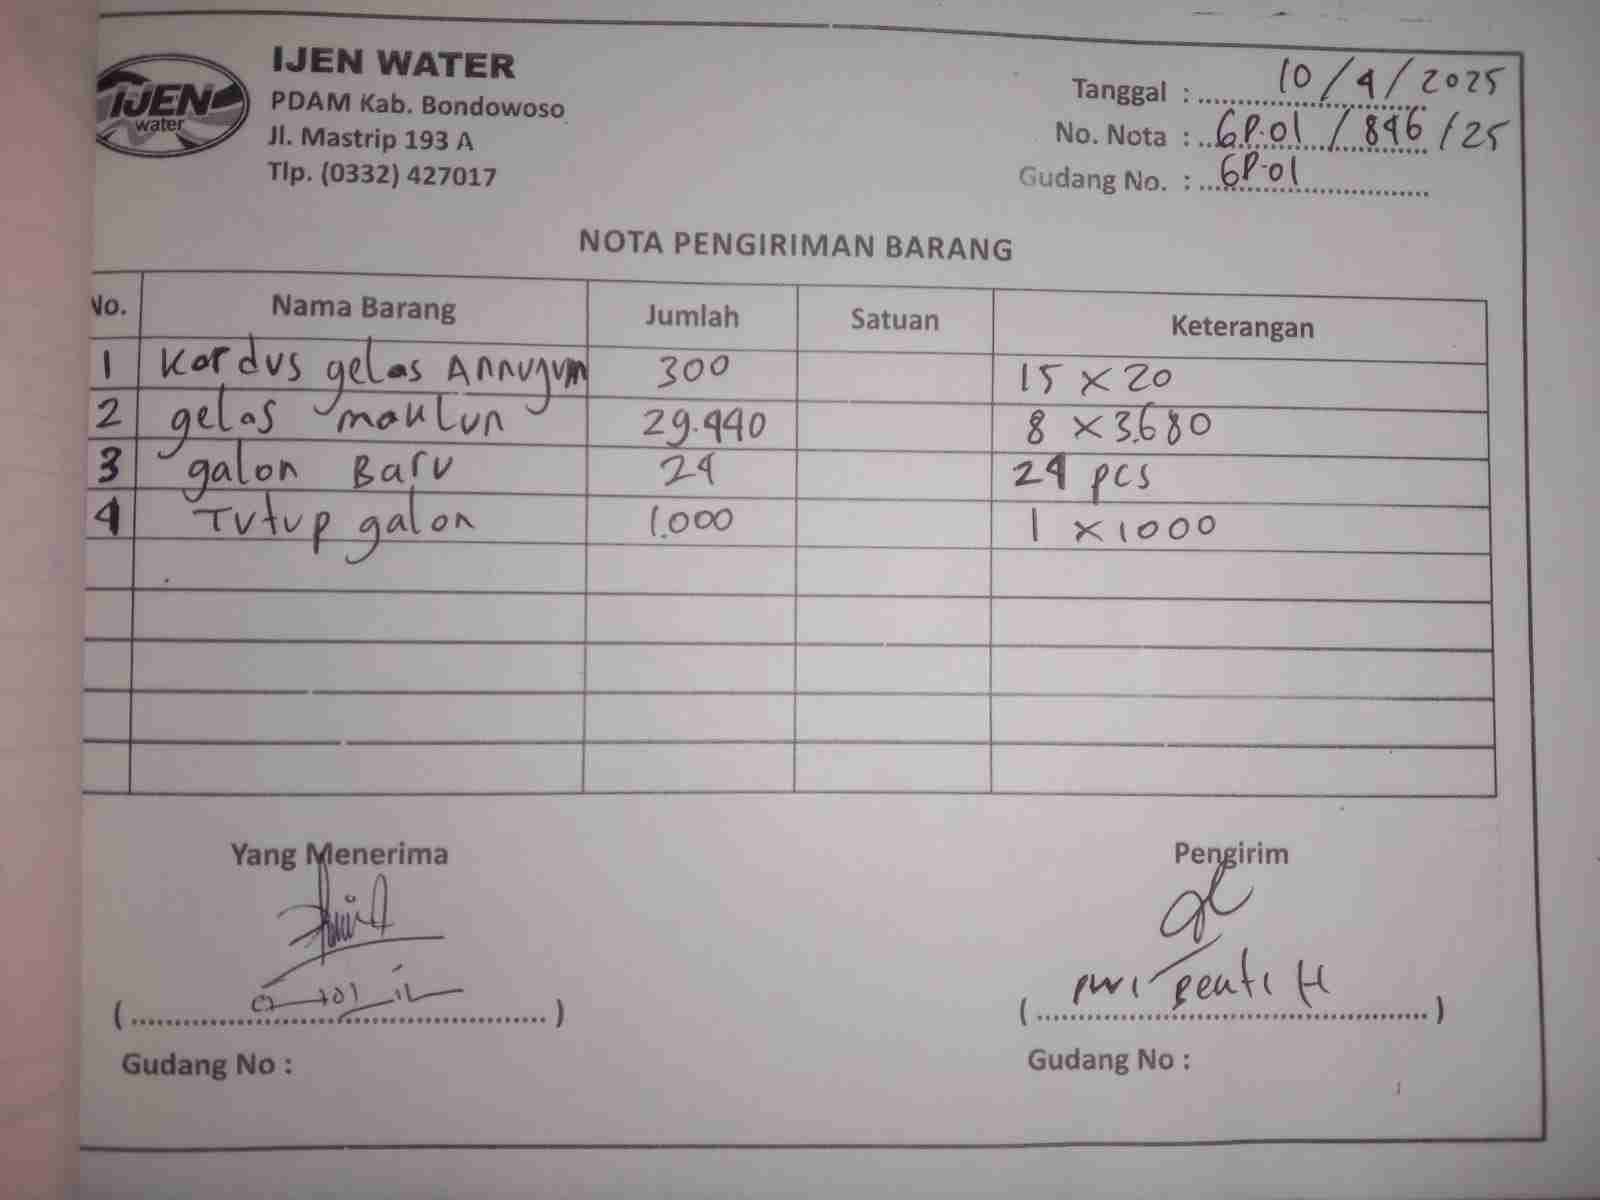 IJEN WATER
IJEN
water
PDAM Kab. Bondowoso
Jl. Mastrip 193 A
Tlp. (0332) 427017
Tanggal : 10 / 4 / 2025
No. Nota : GP.01 / 846 / 25
Gudang No. : GP-01
NOTA PENGIRIMAN BARANG
No. Nama Barang Jumlah Satuan Keterangan
1 Kardus gelas Annujum 300 15 x 20
2 gelas maklun 29.440 8 x 3.680
3 galon Baru 24 24 pcs
4 Tutup galon 1.000 1 x 1000
Yang Menerima Pengirim
Gudang No : Gudang No :